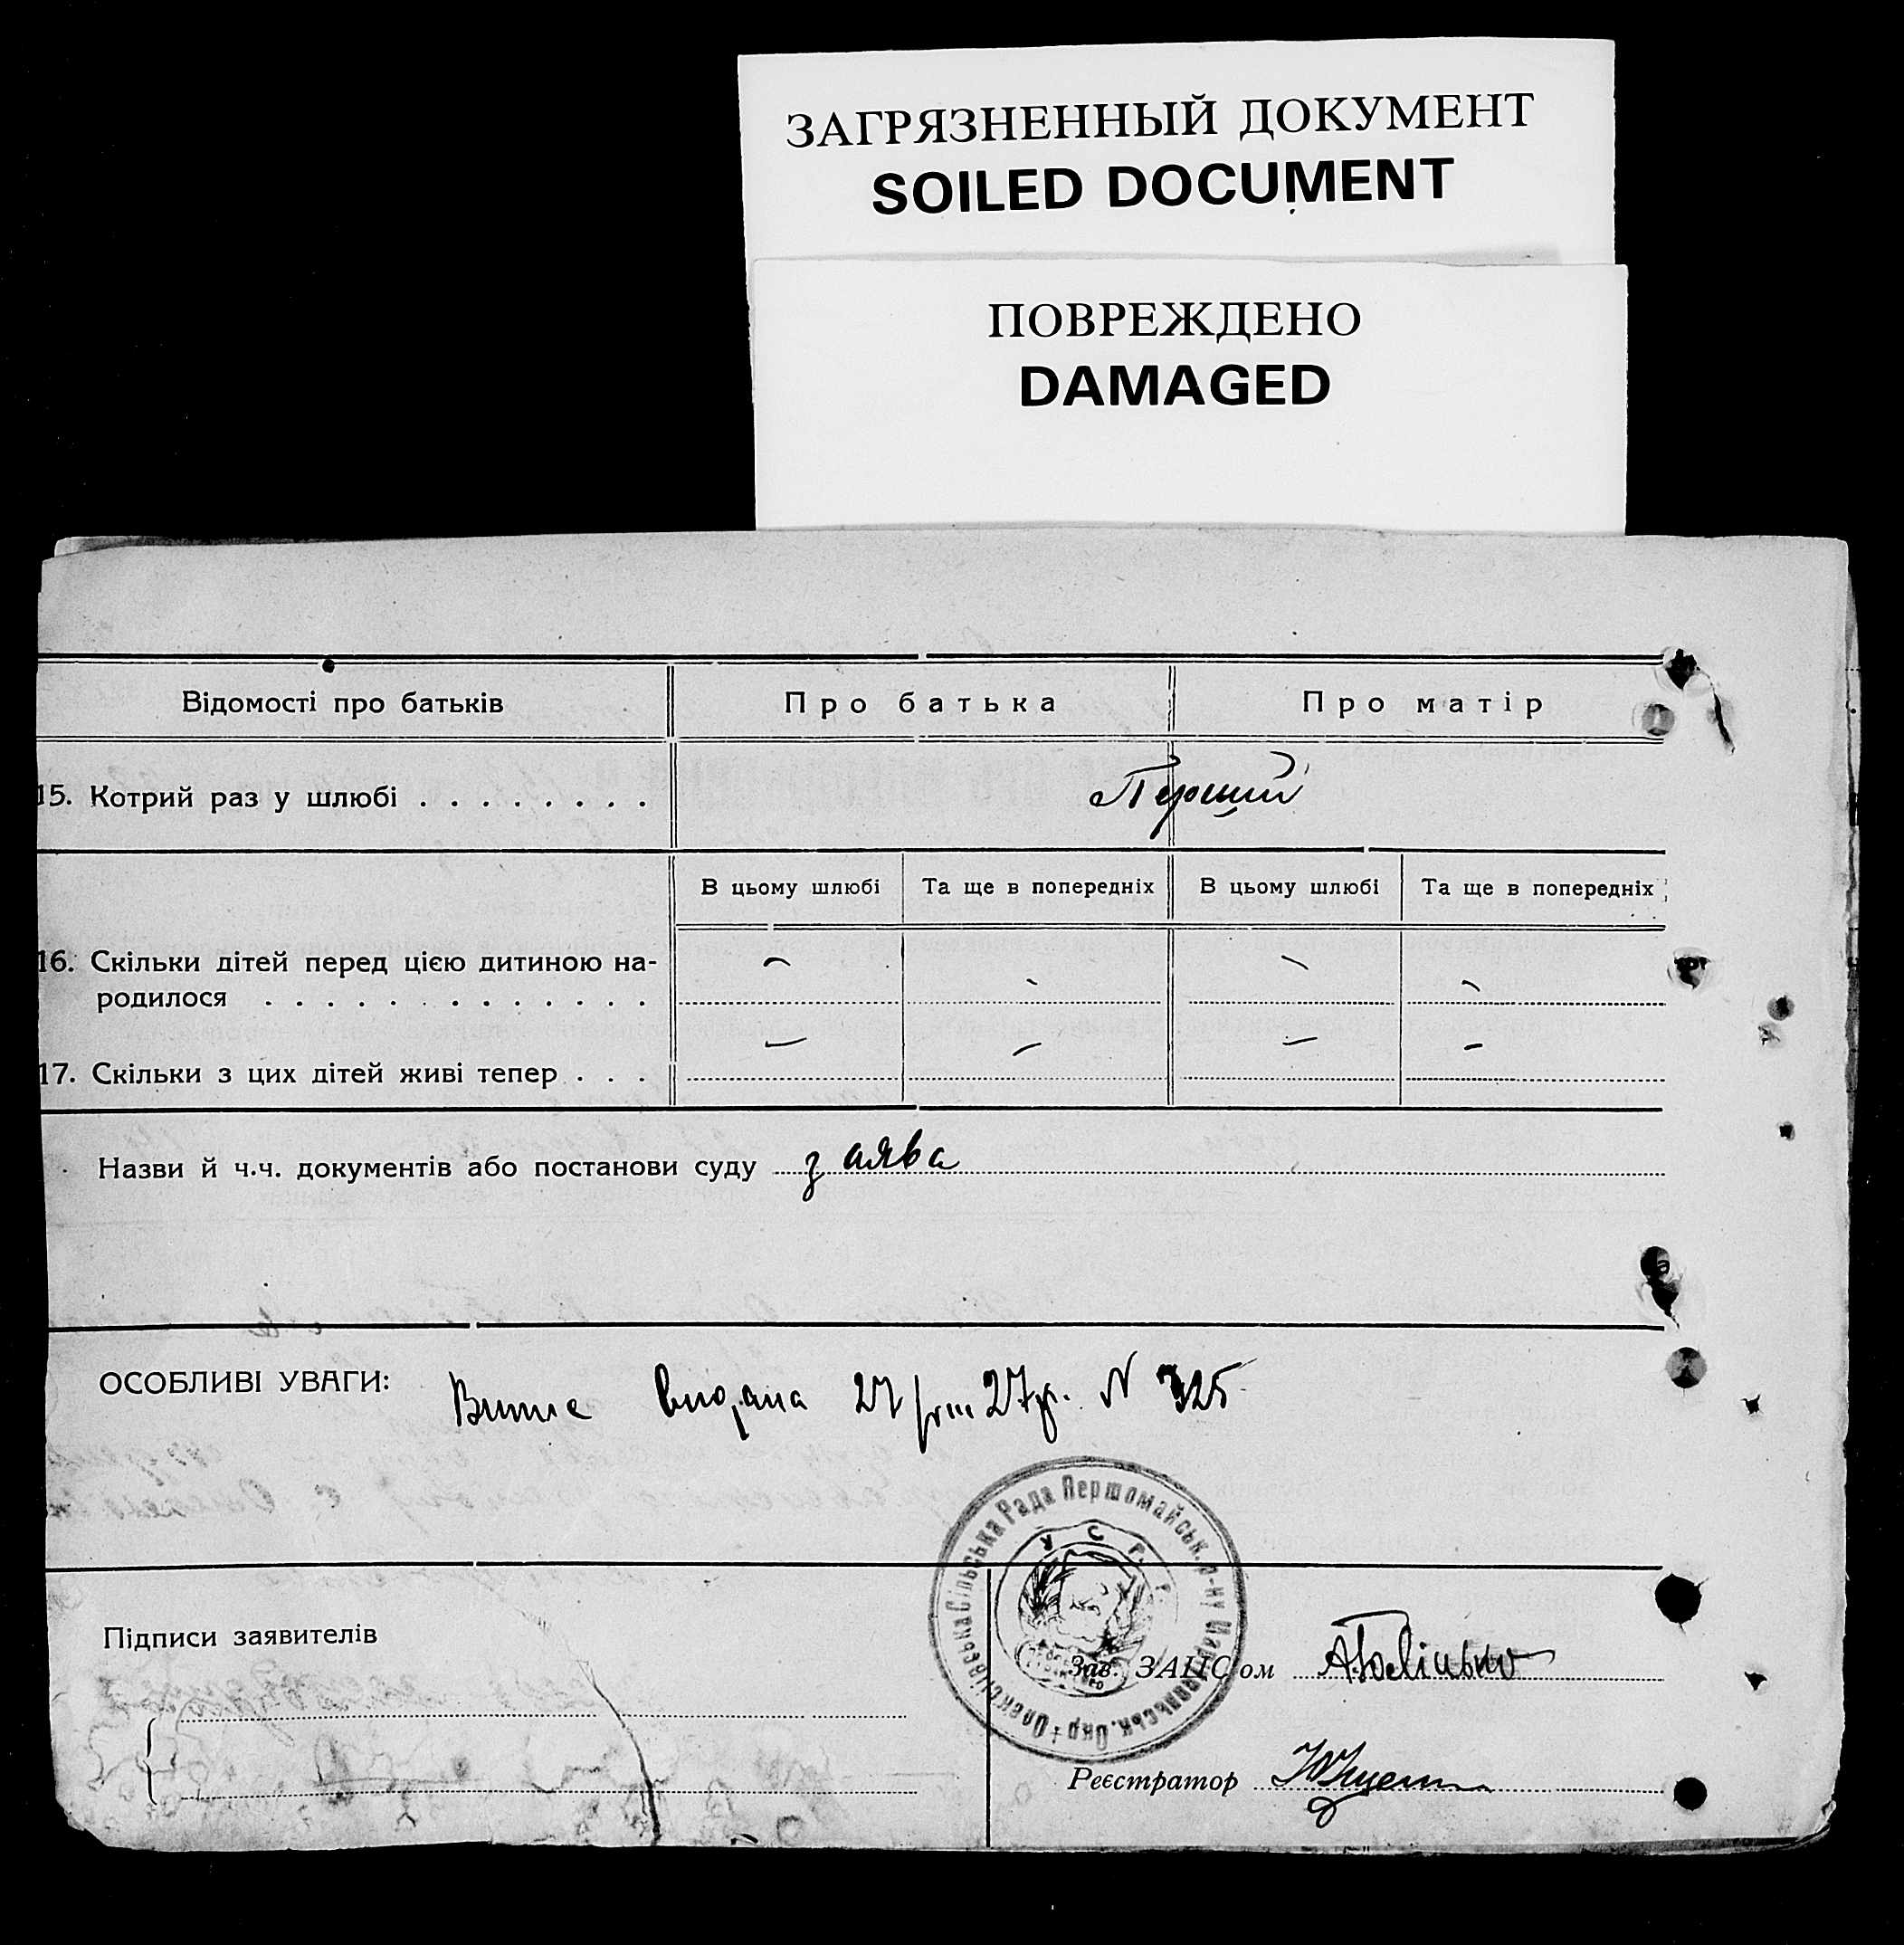 ЗАГРЯЗНЕННЫЙ ДОКУМЕНТ
SOILED DOCUMENT
ПОВРЕЖДЕНО
DAMAGED
Відомості про батьків Про батька Про матір
15. Котрий раз у шлюбі . . . . . . . . Перший
В цьому шлюбі Та ще в попередніх В цьому шлюбі Та ще в попередніх
16. Скільки дітей перед цією дитиною на-
родилося . . . . . . . . . . . . . .
17. Скільки з цих дітей живі тепер . . .
Назви й ч.ч. документів або постанови суду заява
ОСОБЛИВІ УВАГИ: видана 27/VIII 27р. N 325
Олексіївська Сільська Рада Першомайськ. р-ну Окр.
У С Р Р
Підписи заявителів
Зав. ЗАПС'ом
Реєстратор